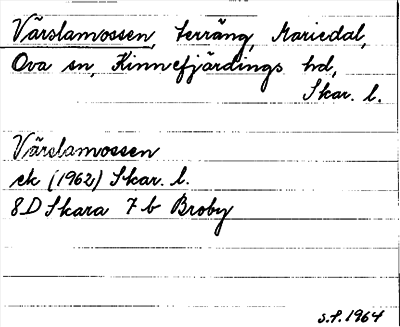 Värslamossen, terräng, Mariedal,
Ova sn, Kinnefjärdings hd,
Skar. l.
Värslamossen
ek (1962) Skar. l.
8D Skara 7b Broby
S.F. 1964